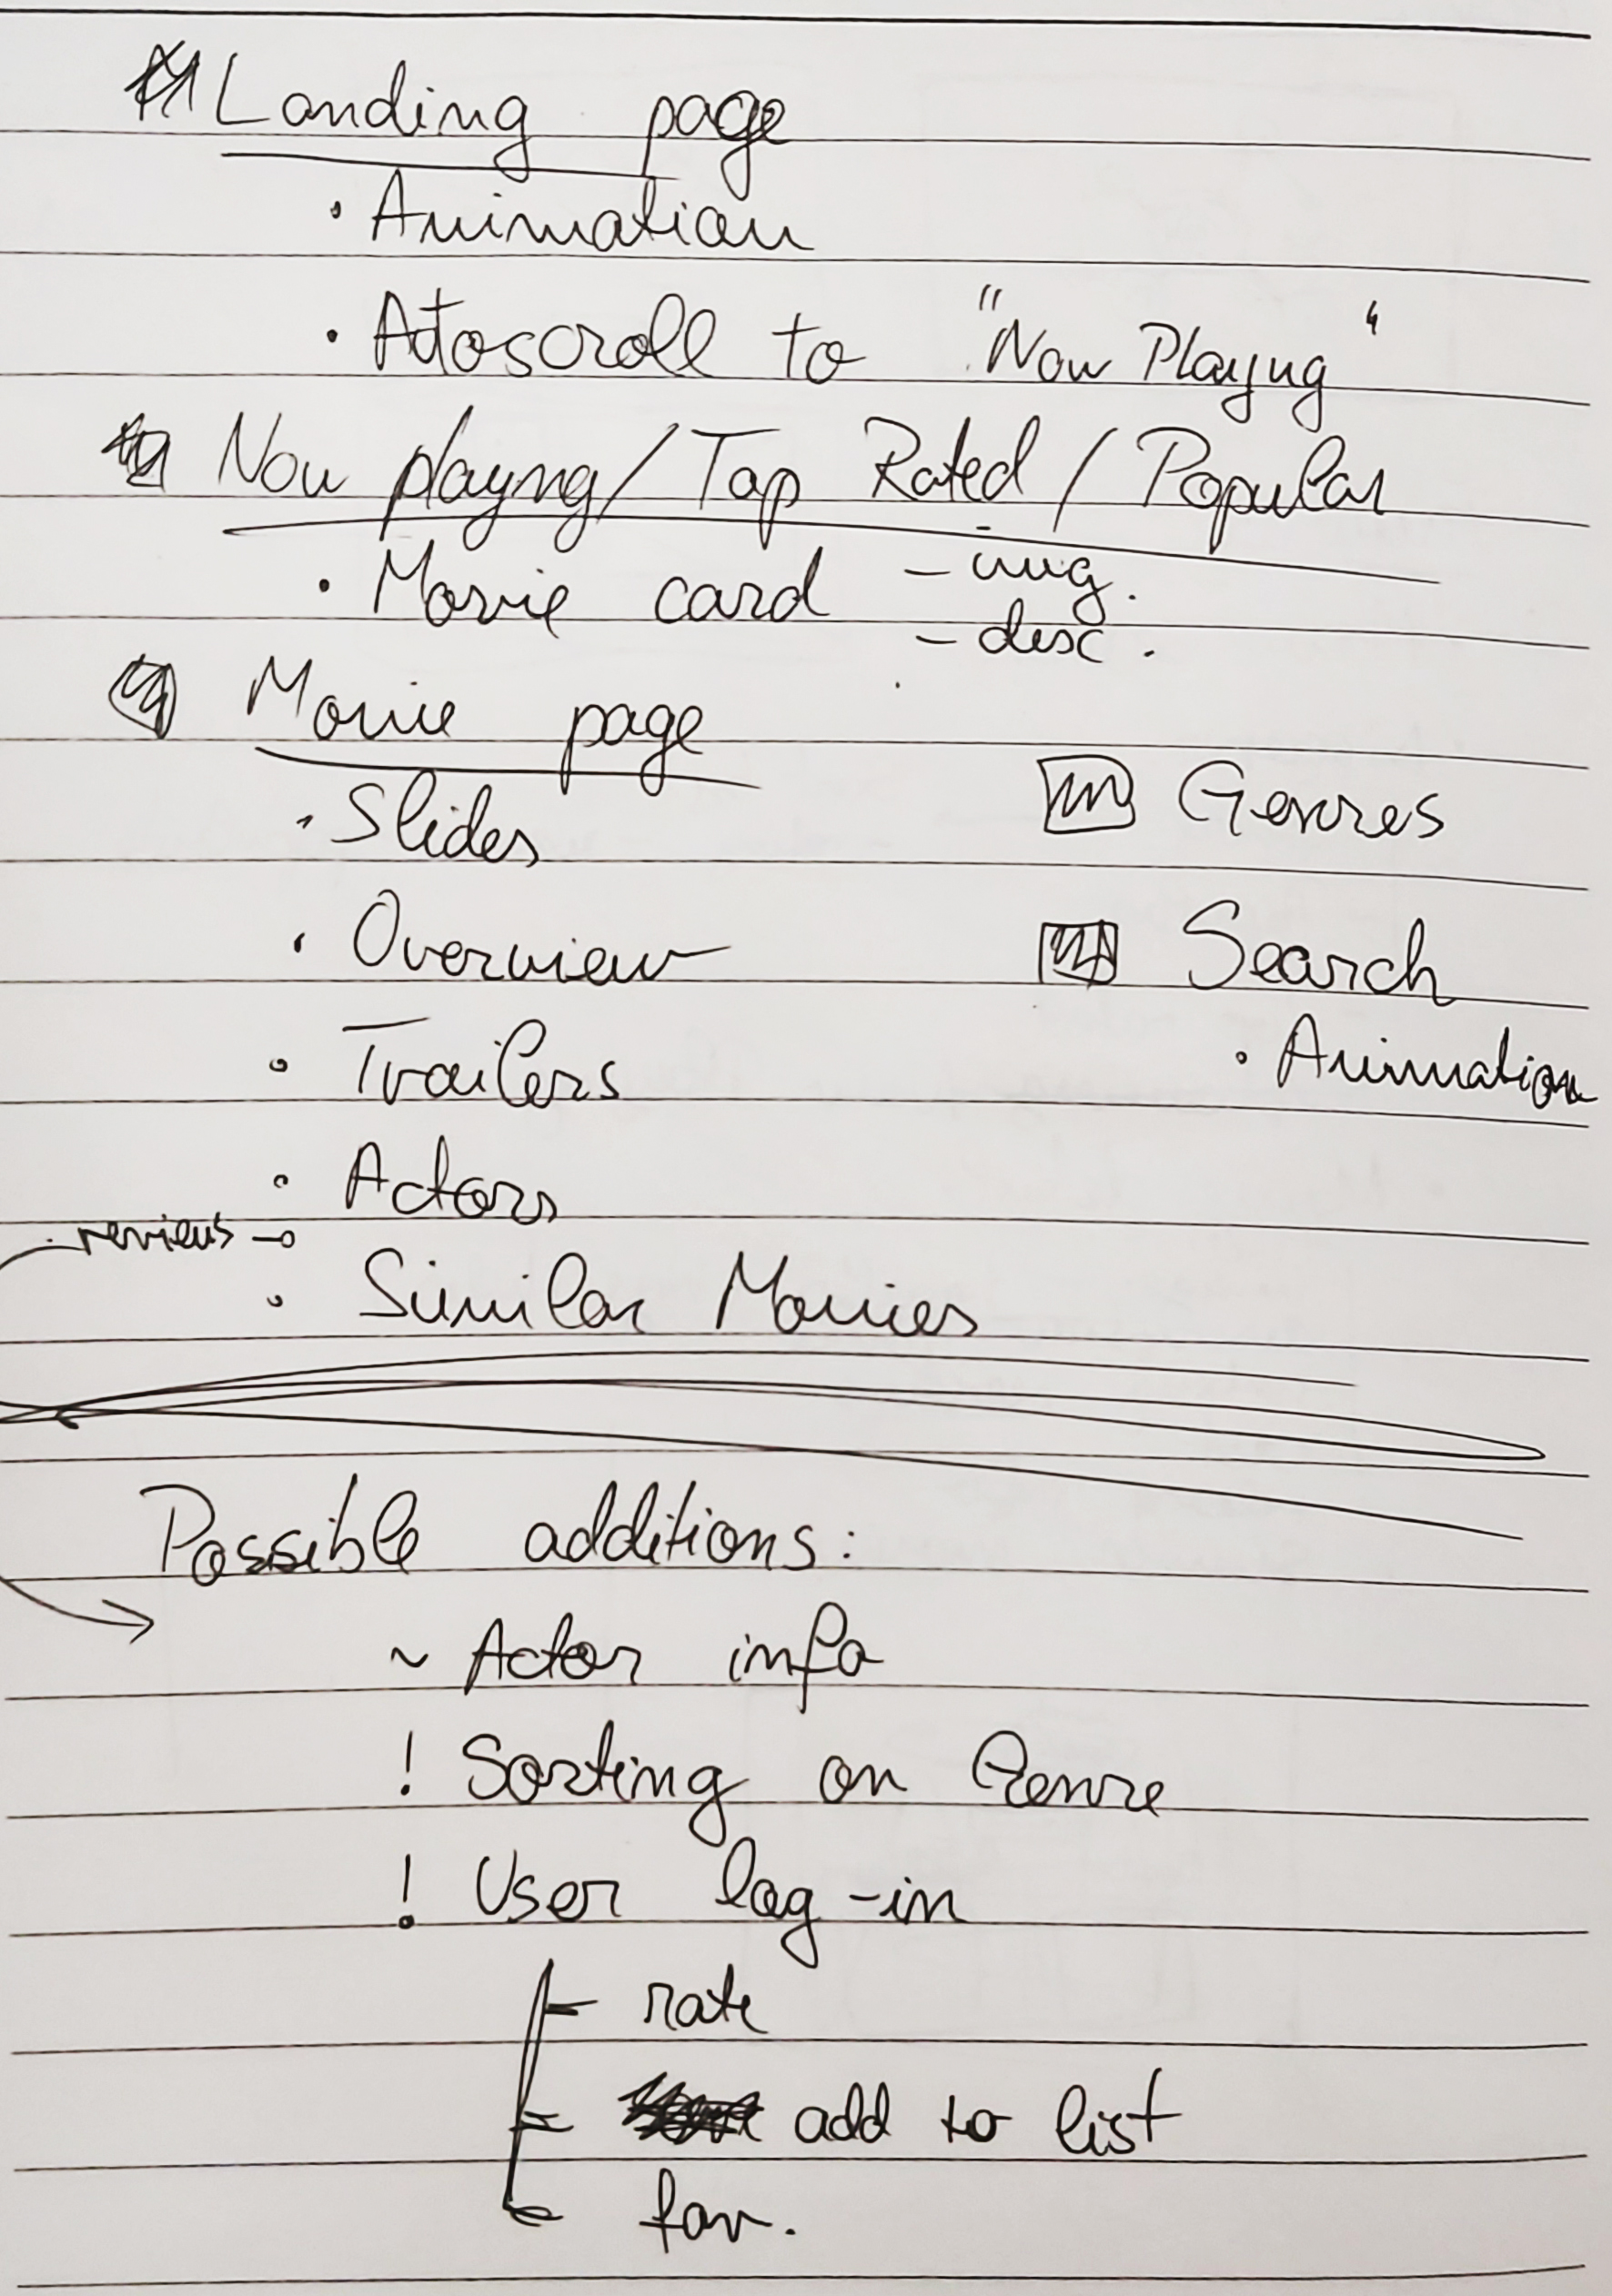 Landing page
· Animation
· Atoscroll to "Now Playng"
Now playng/Top Rated / Popular
· Movie card - img.
- desc.
Movie page
· Slides
· Overview
· Trailers
· Actors
reviews
· Similar Movies
Genres
Search
· Animation
Possible additions:
~ Actor info
! Sorting on Genre
! User log-in
- rate
- add to list
- fav.